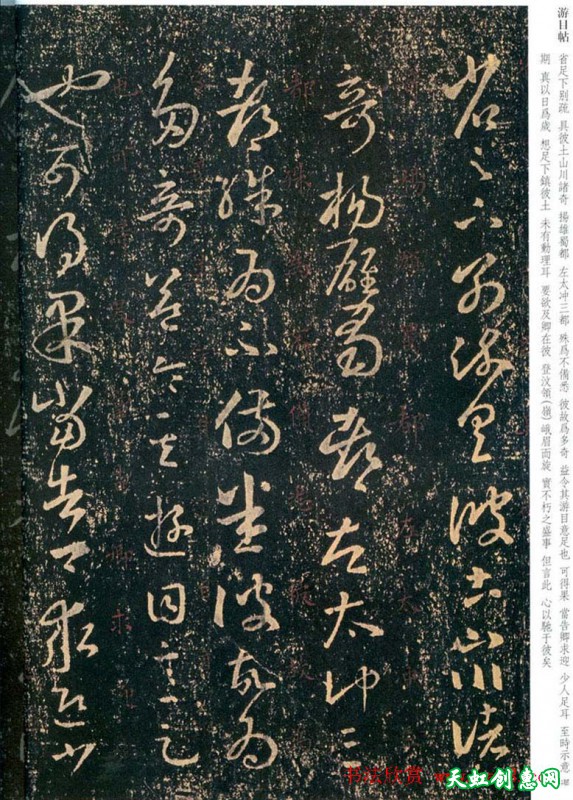 省足下别疏具彼土山川諸
奇揚雄蜀都左太冲三
都殊為不備悉彼故為
多奇益令其游目意足
也可得果當告卿求迎少
游目帖
省足下别疏 具彼土山川諸奇 揚雄蜀都 左太冲三都 殊爲不備悉 彼故爲多奇 益令其游目意足也 可得果 當告卿求迎 少人足耳 至時示意 遲
期 真以日爲歲 想足下鎮彼土 未有動理耳 要欲及卿在彼 登汶領(嶺)峨眉而旋 實不朽之盛事 但言此 心以馳于彼矣
书法欣赏
天虹创惠网